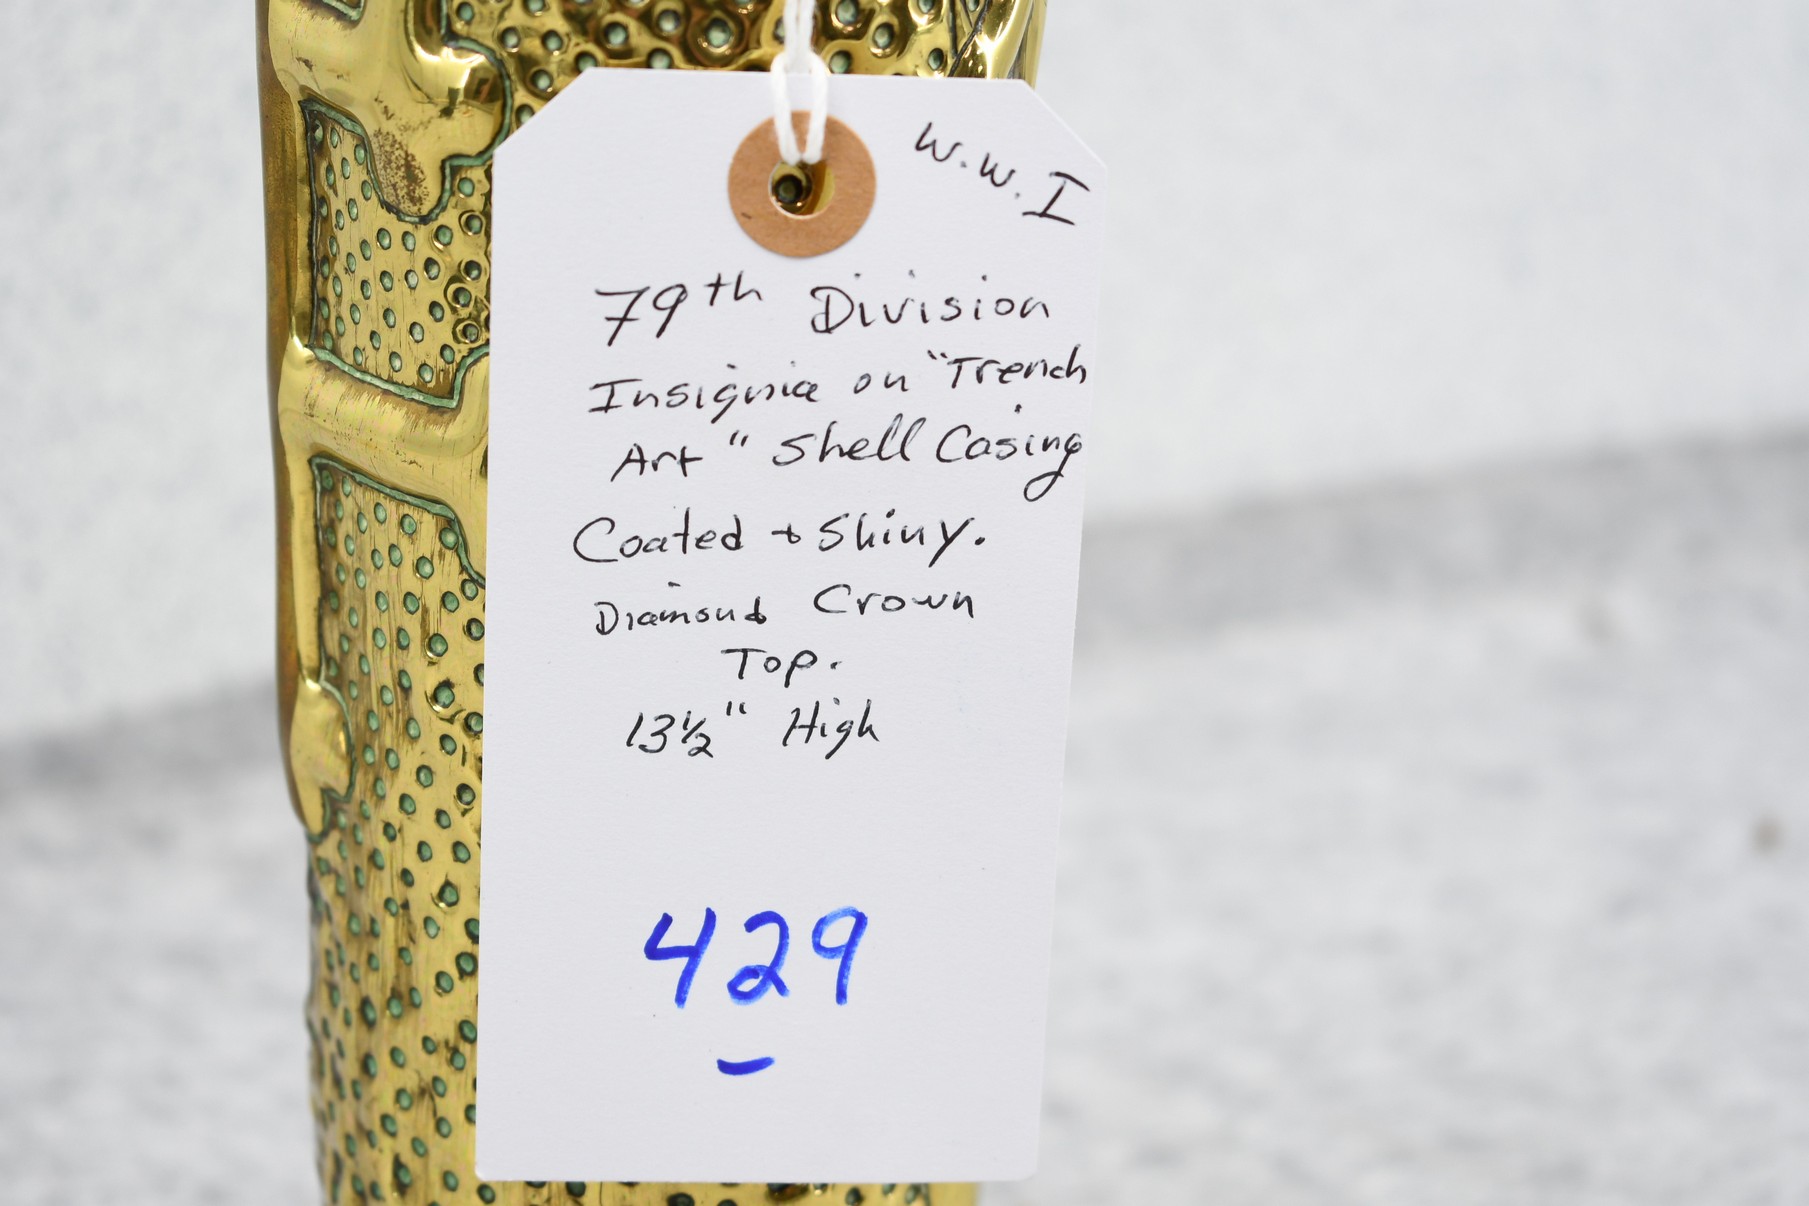 W.W.I
79th Division
Insignia on "Trench
Art" Shell Casing
Coated + Shiny.
Diamond Crown
Top.
13½" High
429